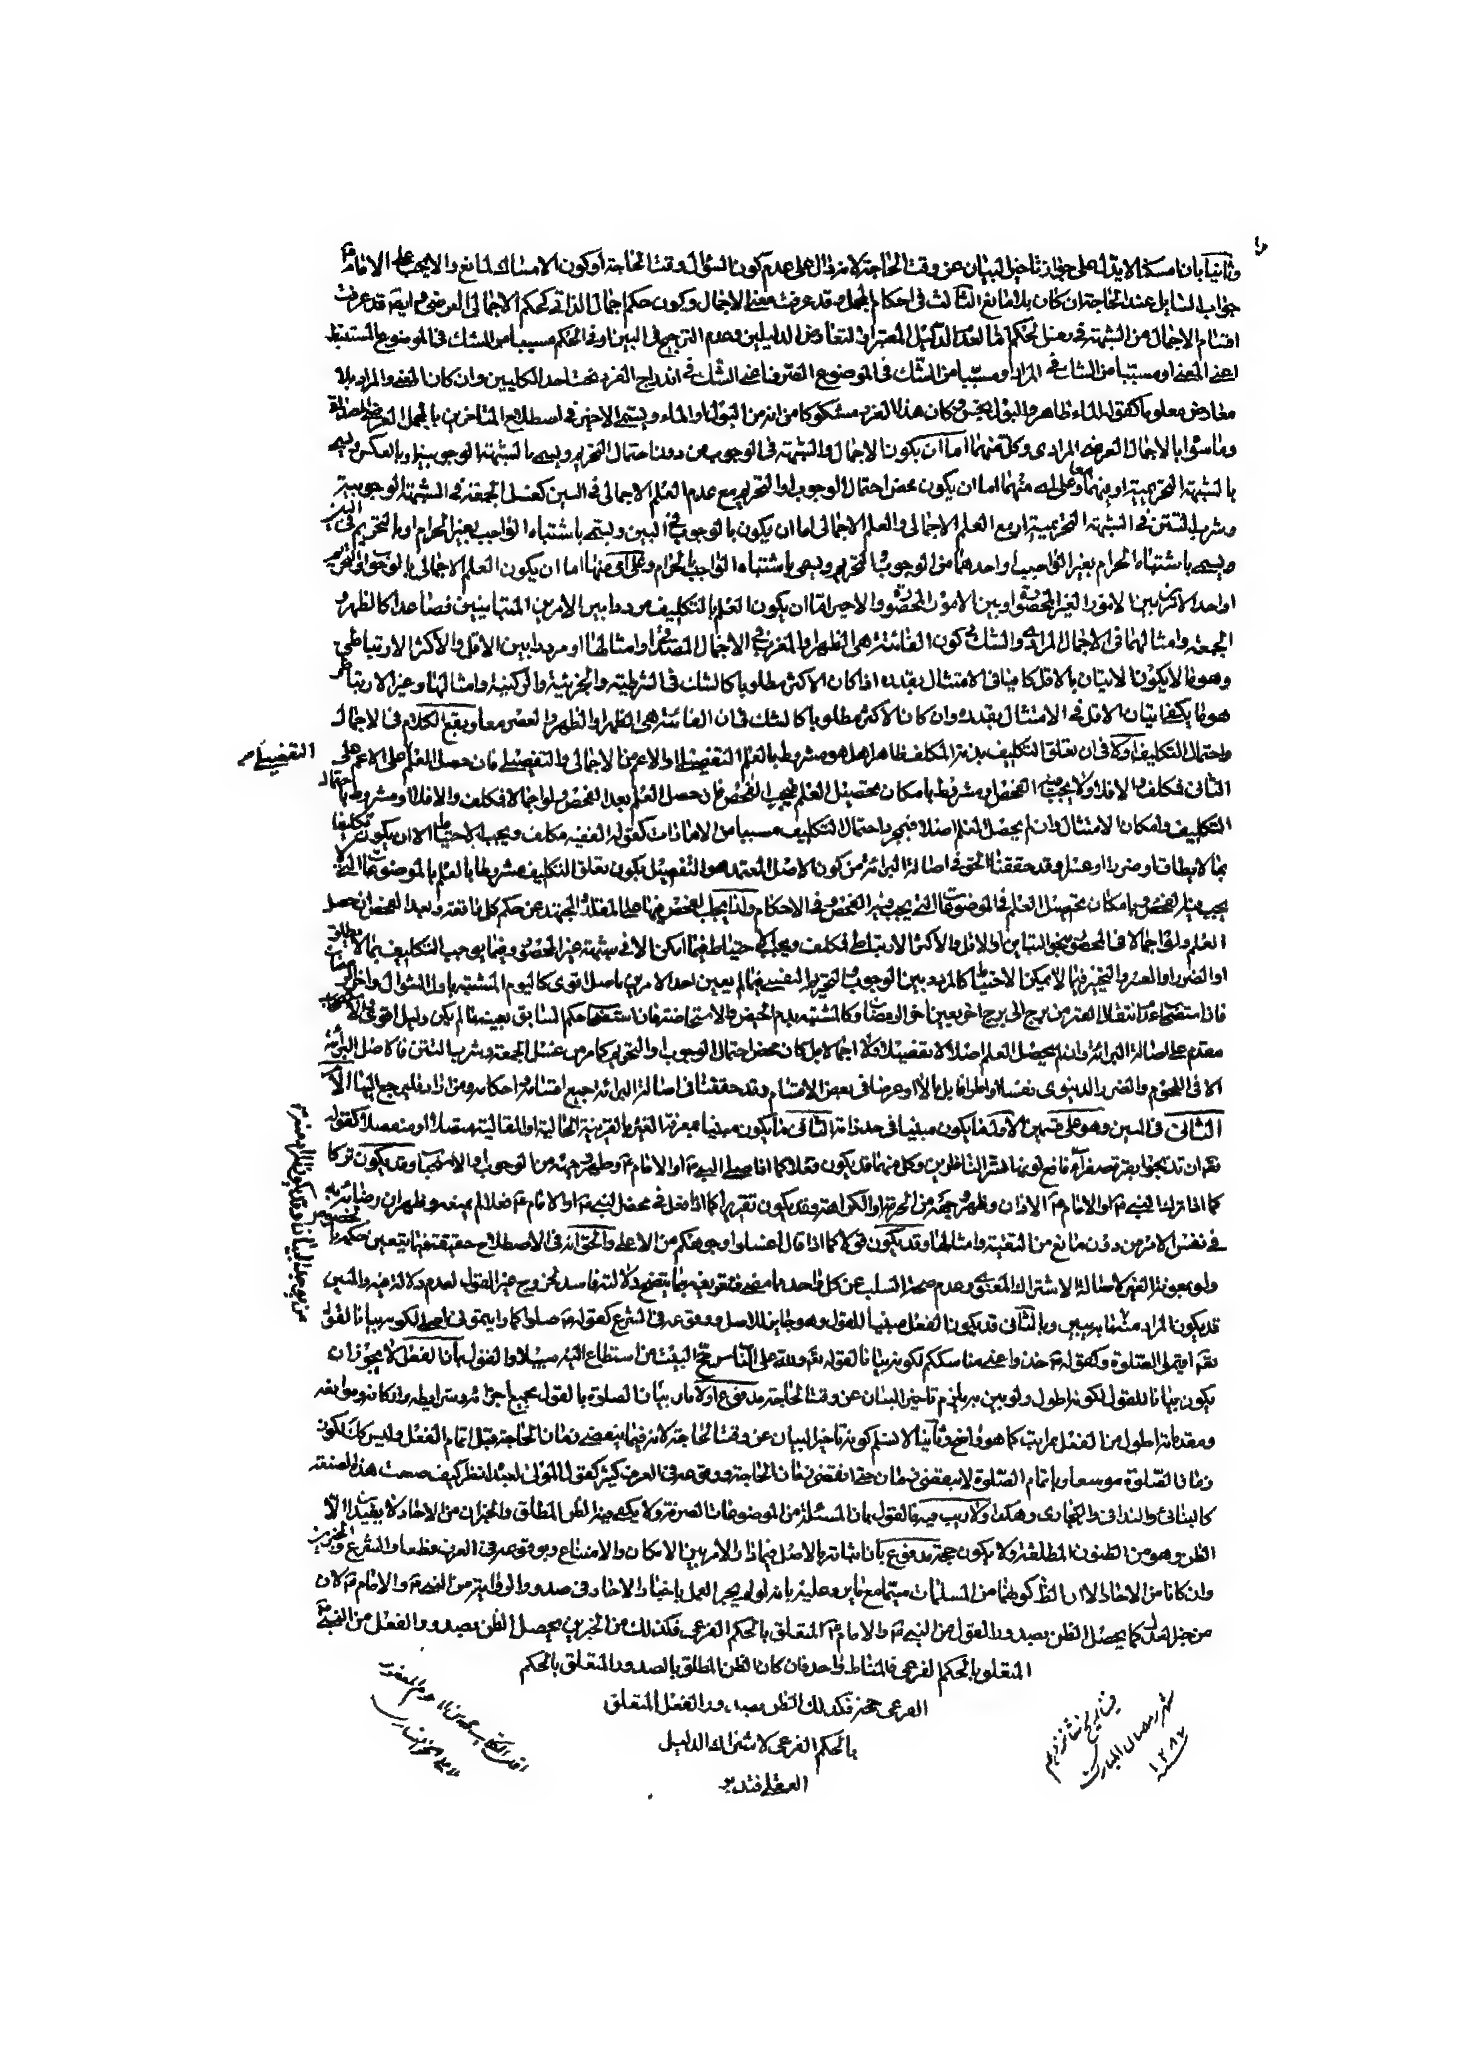 وثانيا بان امساكه لا يدل على جواز تاخير البيان عن وقت الحاجة لانه فرع دال على عدم كون السؤال وقت الحاجة او كون الامساك لمانع والا يجب على الامام
جواب السايل عند الحاجة ان كان بلا مانع الثالث في احكام المجمل قد عرفت معنى الاجمال ويكون حكم اجمال الذاتي كحكم الاجمالي العرضي ايضا قد عرفت
اقسام الاجمال من الشبهة في نفس الحكم اما لفقد الدليل المعتبر او لتعارض الدليلين وعدم الترجيح في البين او في الحكم مسببا من الشك في الموضوع المستنبط
اعنى المعنى او مسببا من الشك في المراد او مسببا من الشك في الموضوع الصرف اعنى الشك في اندراج الفرد تحت احد الكليين وان كان المعنى والمراد بلا
معارض معلوما كقوله الماء طاهر والبول نجس وكان هذا الفرد مشكوكا من انه من البول او الماء ويسمى الاخير في اصطلاح المتاخرين بالمجمل العرضي المصداقي
وما سواه بالاجمال العرضي المرادي وكل منهما اما ان يكون الاجمال والشبهة في الوجوب من دون احتمال التحريم ويسمى بالشبهة الوجوبية او بالعكس ويسمى
بالشبهة التحريمية او بينهما معا وعلى اى منهما اما ان يكون محض احتمال الوجوب او التحريم مع عدم العلم الاجمالي في البين كغسل الجمعة في الشبهة الوجوبية
وشرب التتن في الشبهة التحريمية او مع العلم الاجمالي والعلم الاجمالي اما ان يكون بالوجوب في البين ويسمى باشتباه الواجب بغير الحرام او بالتحريم في البين
ويسمى باشتباه الحرام بغير الواجب او احدهما من الوجوب والتحريم ويسمى باشتباه الواجب بالحرام وعلى اى منها اما ان يكون العلم الاجمالي بالوجوب او التحريم
او احد الامرين بين الامور الغير المحصورة او بين الامور المحصورة والاخير اما ان يكون العلم بالتكليف مرددا بين الامرين المتباينين فصاعدا كالظهر و
الجمعة وامثالهما في الاجمال المرادي والشك في كون الفائتة هى الظهر او المغرب في الاجمال المصداقي وامثالها او مرددا بين الاقل والاكثر الارتباطي
وهو ما لا يكون الاتيان بالاقل كافيا في الامتثال بقدره اذا كان الاكثر مطلوبا كالشك في الشرطية والجزئية والركنية وامثالها وغير الارتباطي
هو ما يكفى اتيان الاقل في الامتثال بقدره وان كان الاكثر مطلوبا كالشك في ان الفائتة هى الظهر او الظهر والعصر معا ويقع الكلام في الاجمال
واحتمال التكليف اولا في ان تعلق التكليف بذمة المكلف ظاهرا هل هو مشروط بالعلم التفصيلى او الاعم من الاجمالي والتفصيلى فان حصل العلم على الاعم على
التفصيلى
الثاني فكلف والا فلا ولا يجب الفحص او مشروط بامكان تحصيل العلم فيجب الفحص فان حصل العلم بعد الفحص ولو اجمالا فكلف والا فلا او مشروط باحتمال
التكليف وامكان الامتثال وان لم يحصل العلم اصلا فبمجرد احتمال التكليف مسببا من الامارات كقول الفقيه مكلف ويجب الاحتياط الا ان يكون تكليفا
بما لا يطاق او ضررا او عسرا وقد حققنا الحق في اصالة البرائة من كون الاصل المعتمد هو التفصيل بكون تعلق التكليف مشروطا بالعلم بالموضوعات التى لا
يجب فيها الفحص وبامكان تحصيل العلم في الموضوعات التى يجب فيها الفحص وفي الاحكام ولذا يجب الفحص فيها على المقلد والمجتهد عن حكم كل ما تقدم وبعد الفحص ان حصل
العلم ولو اجمالا في المحصور بنحو التباين او الاقل والاكثر الارتباطي فكلف ويجب الاحتياط فيما امكن الا في شبهة غير المحصور وفيما يوجب التكليف بما لا يطاق
او الضرر او العسر والتخيير فيما لا يمكن الاحتياط كالمردد بين الوجوب والتحريم النفسي فيما لم يعين احد الامرين باصل اقوى كاليوم المشتبه باول الشوال واخر رمضان
مقدم على اصالة البرائة وان لم يحصل العلم اصلا لا تفصيلا ولا اجمالا بل كان محض احتمال الوجوب او التحريم كما مر من غسل الجمعة وشرب التتن فالاصل البرائة
الا في اللحوم والضرر الدنيوى نفسا او اطرافا او مالا او عرضا في بعض الاقسام وقد حققنا في اصالة البرائة جميع اقسامه واحكامه ومن اراد فليرجع اليها
الثاني في المبين وهو على قسمين الاول ما يكون مبينا في حد ذاته الثاني ما يكون مبينا بمعرفة الغير بالقرينة الحالية او المقالية متصلا او منفصلا كقوله
تعالى ان تذبحوا بقرة صفراء فاقع لونها تسر الناظرين وكل منهما قد يكون فعلا كما اذا صلى النبي او الامام وظهر وجهه من الوجوب او الاستحباب وقد يكون تركا
كما اذا ترك النبي او الامام الاذان وظهر وجهه من الحرمة او الكراهة وقد يكون تقريرا كما اذا فعل في محضر النبي او الامام فعلا لم يمنعه وظهر ان رضائه به
في نفس الامر من دون مانع من التقية وامثالها وقد يكون قولا كما اذا قال اغسلوا وجوهكم من الاعلى والحق انه في الاصطلاح حقيقة فيما يتعين حكمه بالخصوص
ولو بمعونة الغير لاصالة الاشتراك المعنوى وعدم صحة السلب عن كل واحد مما مضى فتعريفه بما يتضح دلالته فاسد لخروج غير القول لعدم دلالة فيه والمبين
قد يكون المراد منهما بيبين وبالثاني قد يكون الفعل مبينا للقول وهو جايز للاصل ووقوعه في الشرع كقوله صلوا كما رايتموني اصلى لكونه بيانا لقوله
تعالى اقيموا الصلوة وكقوله خذوا عنى مناسككم لكونه بيانا لقوله تعالى ولله على الناس حج البيت من استطاع اليه سبيلا والقول بان الفعل لا يجوز ان
يكون بيانا للقول لكونه اطول ولو بين به يلزم تاخير البيان عن وقت الحاجة مدفوع اولا بان بيان الصلوة بالقول بجميع اجزائه وشرايطه واركانه وموانعه
ومقدماته اطول من الفعل بمراتب كما هو واضح وثانيا لا نسلم كونه تاخير البيان عن وقت الحاجة لانه فيما ينقضى زمان الحاجة قبل اتمام الفعل وليس كك لكون
زمان الصلوة موسعا وباتمام الصلوة لا ينقضى زمان حتى انقضى زمان الحاجة ووقوعه في العرف كثير كقول المولى لعبده انظر كيف صنعت هذه الصنعة
كالبنائى والنداف والنجارى وهكذا ولا ريب فيه والقول بان المسئلة من الموضوعات الصرفة ولا يكفى فيه الظن المطلق والخبران من الاحاد لا يفيدان الا
الظن وهو من الظنون المطلقة ولا يكون حجة مدفوع بان اثباته بالاصل فيما دار الامر بين الامكان والامتناع وبوقوعه في العرف قطعا والشرع والخبرين
وان كانا من الاحاد الا ان الظن
من خبر العدل كما يحصل الظن بصدور القول من النبي والامام المتعلق بالحكم الفرعي فكذلك من الخبرين يحصل الظن بصدور الفعل من النبي
المتعلق بالحكم الفرعي فالمناط واحد فان كان الظن المطلق بالصدور المتعلق بالحكم
الفرعي حجة فكذلك الظن بصدور الفعل المتعلق
بالحكم الفرعي لاشتراك الدليل
العقلى فتدبر
شهر رمضان المبارك
سنة ١٢٨٢